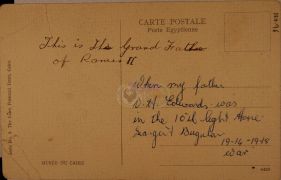 CARTE POSTALE
Poste Egyptienne
This is The Grand Father
of Rameis II
When my father
D.H. Edwards was
in the 10th light Horse
19-14-1918
war
MUSÉE DU CAIRE